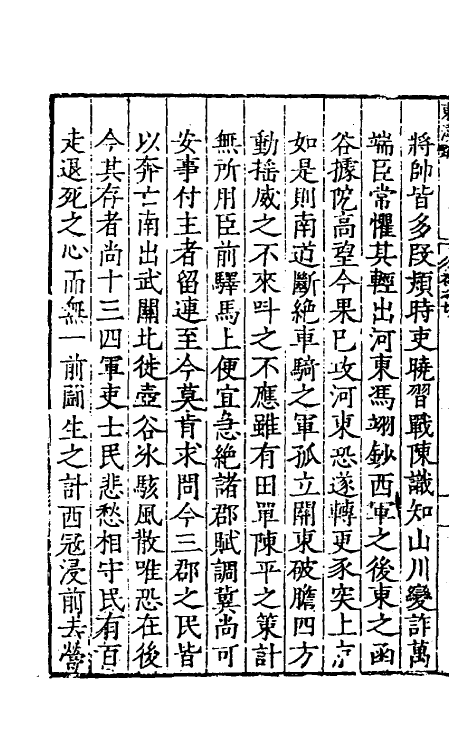 將帥皆多段熲時吏曉習戰陳識知山川變詐萬
端臣常懼其輕出河東馮翊鈔西軍之後東之函
谷據阸高望今果已攻河東恐遂轉更豕突上京
如是則南道斷絕車騎之軍孤立關東破膽四方
動搖威之不來叫之不應雖有田單陳平之策計
無所用臣前驛馬上便宜急絕諸郡賦調冀尚可
安事付主者留連至今莫肯求問今三郡之民皆
以奔亡南出武關北徙壺谷氷駭風散唯恐在後
今其存者尚十三四軍吏士民悲愁相守民有百
走退死之心而無一前鬪生之計西冦浸前去營